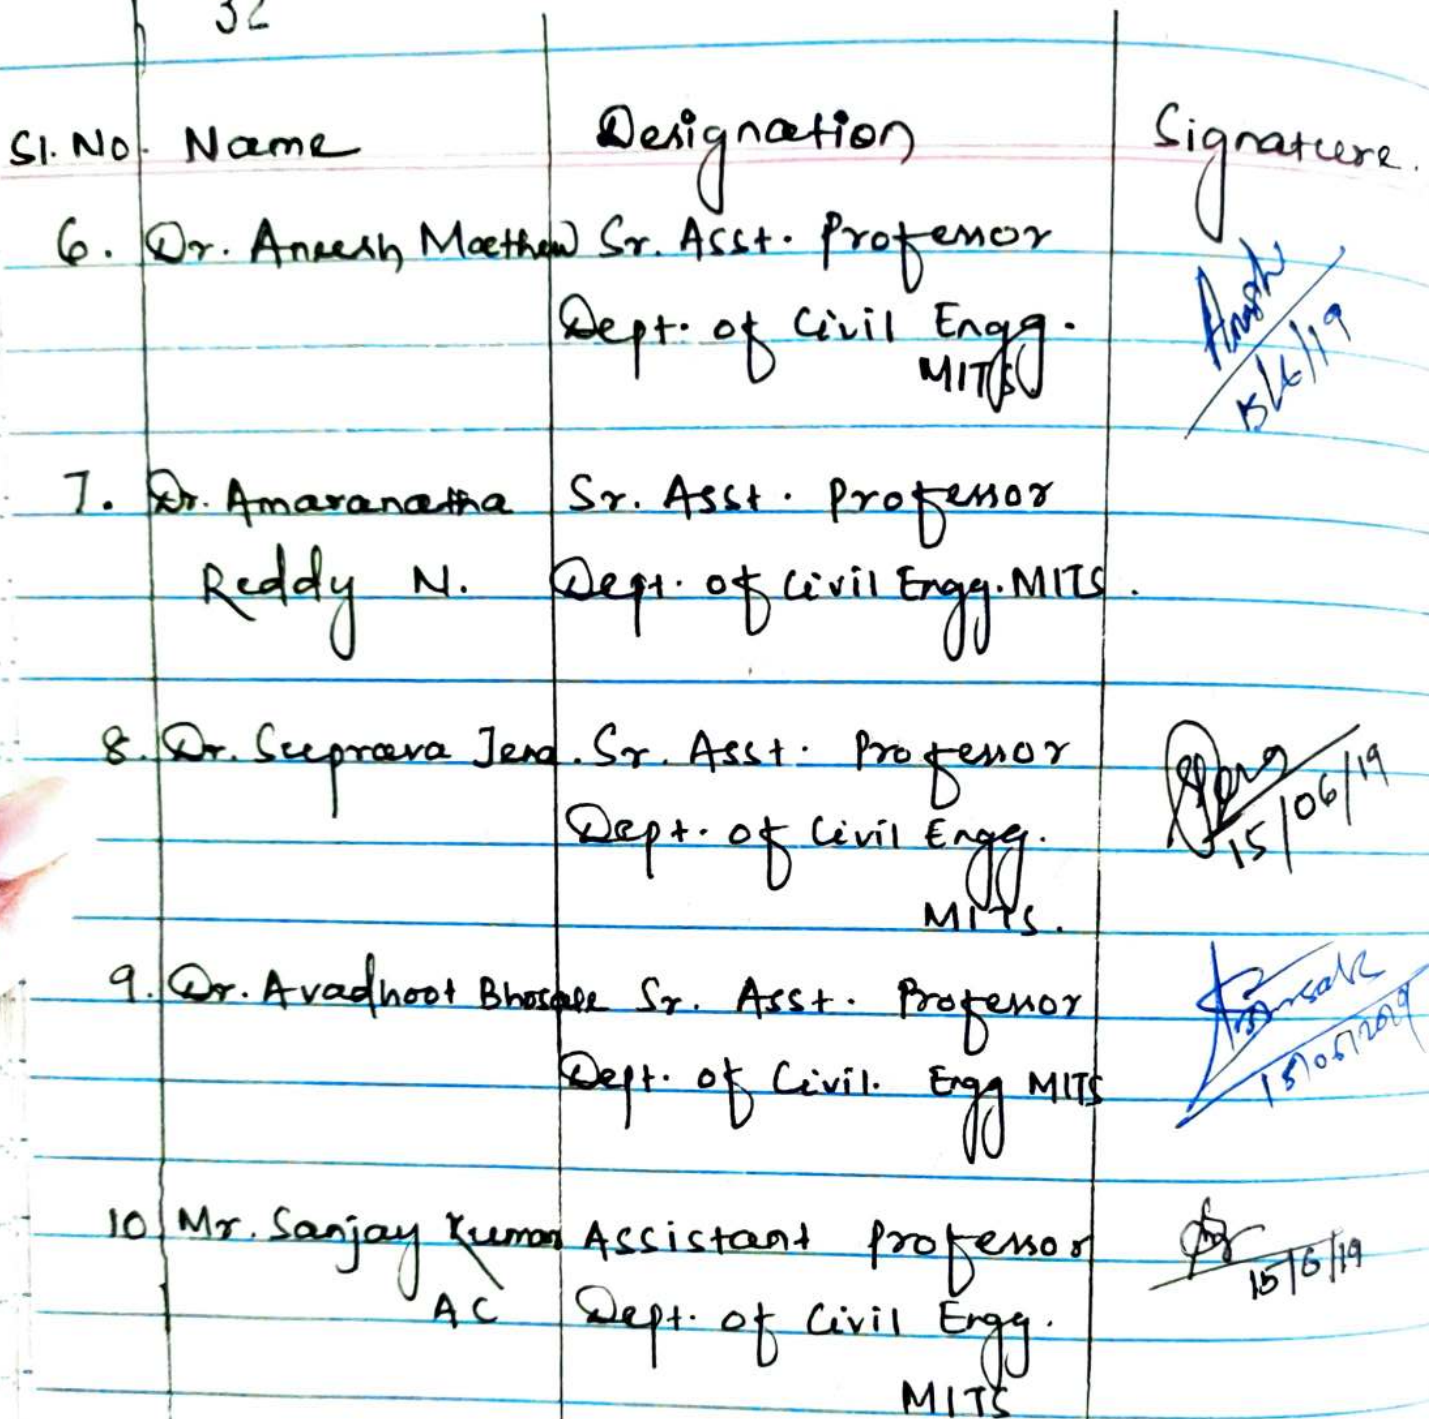 32
Sl. No. Name Designation Signature.
6. Dr. Aneesh Mathew Sr. Asst. Professor
Dept. of Civil Engg.
MITS
15/6/19
7. Dr. Amaranatha Sr. Asst. Professor
Reddy N. Dept. of Civil Engg. MITS.
8. Dr. Suprava Jena. Sr. Asst. Professor
Dept. of Civil Engg.
15/06/19
MITS.
9. Dr. Avadhoot Bhosale Sr. Asst. Professor
Dept. of Civil. Engg MITS
15/06/2019
10 Mr. Sanjay Kumar Assistant Professor
15/6/19
AC Dept. of Civil Engg.
MITS